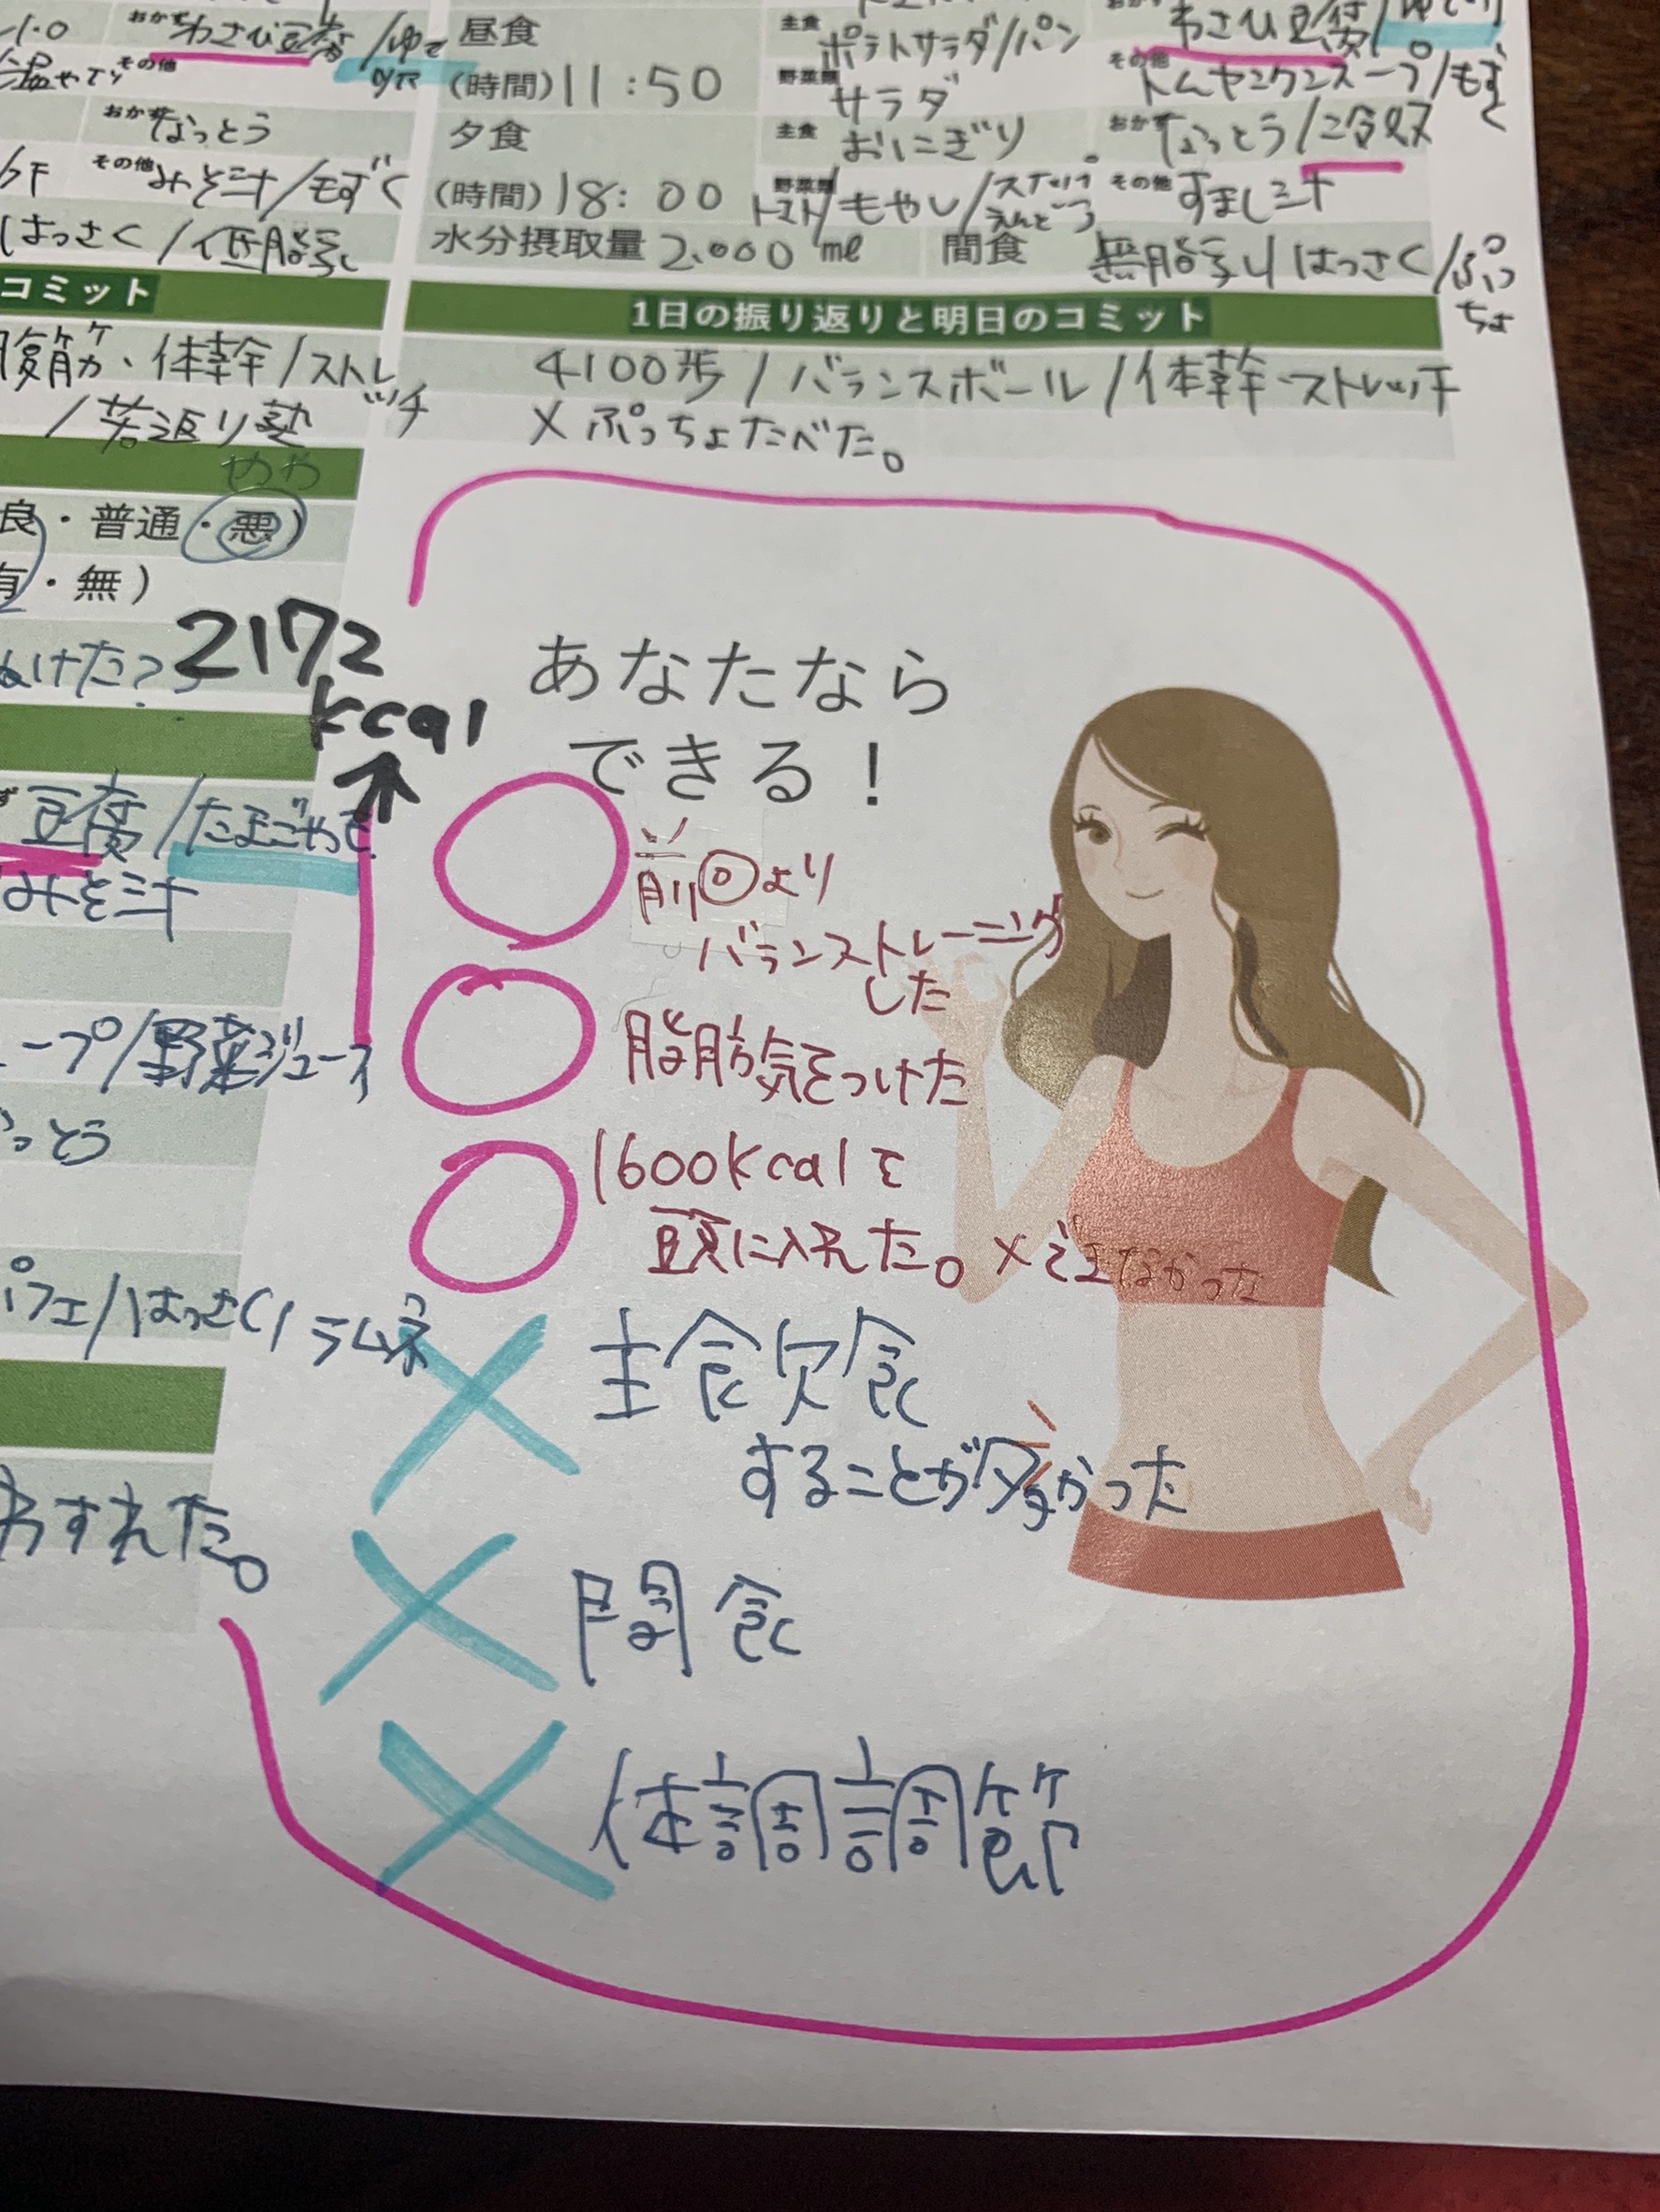 おかず わさび豆腐/ゆで
その他
おかず なっとう
その他 みそ汁/もずく
はっさく/低脂乳
コミット
腹筋、体幹/ストレッチ
/若返り塾
やや
良・普通・悪)
有・無)
2172
kcal
豆腐/たまごやき
みそ汁
ープ/野菜ジュース
っとう
パフェ/はっさく/ラムネ
わすれた。
昼食
主食 ポテトサラダ/パン
おかず わさび豆腐/ゆで
(時間)11:50
野菜類 サラダ
その他 トムヤンクンスープ/もずく
夕食
主食 おにぎり
おかず なっとう/冷奴
(時間)18:00
野菜類 トマト/もやし/スナップえんどう
その他 すまし汁
水分摂取量 2.000 ml
間食 無脂乳/はっさく/ぷっちょ
1日の振り返りと明日のコミット
4100歩/バランスボール/体幹・ストレッチ
×ぷっちょたべた。
あなたなら
できる!
前回より
バランストレーニング
した
脂肪気をつけた
1600kcalを
頭に入れた。×できなかった
主食欠食
することが多かった
間食
体調調節